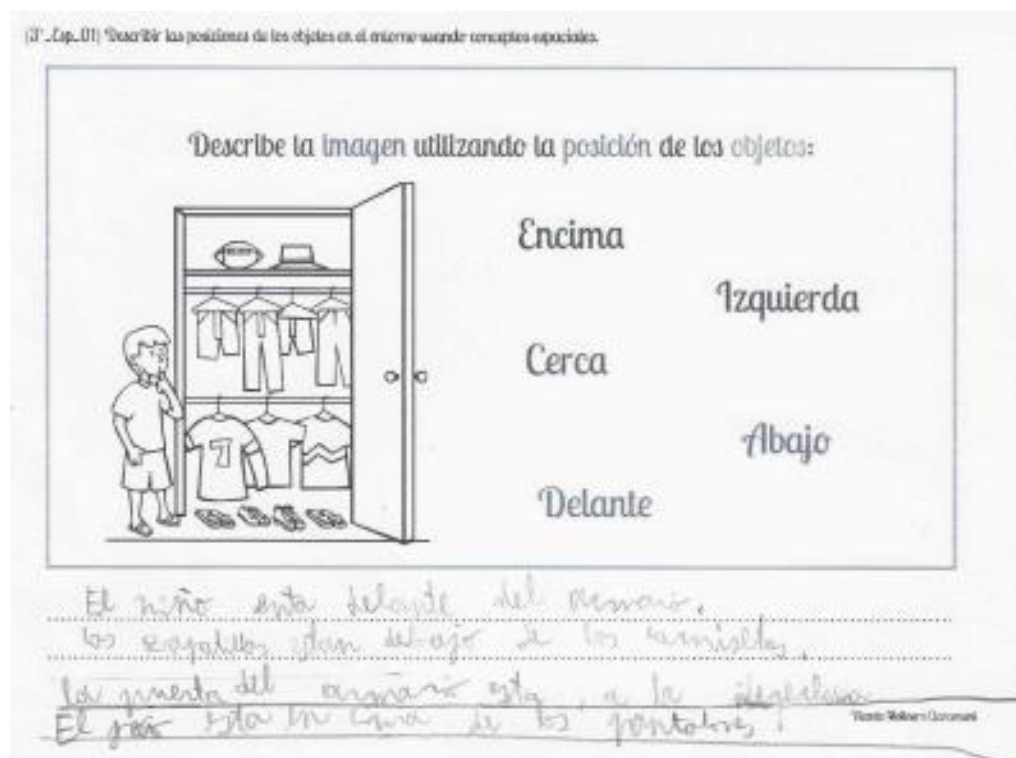 (3°_Esp_01) Describir las posiciones de los objetos en el entorno usando conceptos espaciales.
Describe la imagen utilizando la posición de los objetos:
Encima
Izquierda
Cerca
Abajo
Delante
7
El niño esta delante del
los zapatillas stan debajo de los camisetas.
La puerta del armario esta, a la
El esta en cima de los pantalones